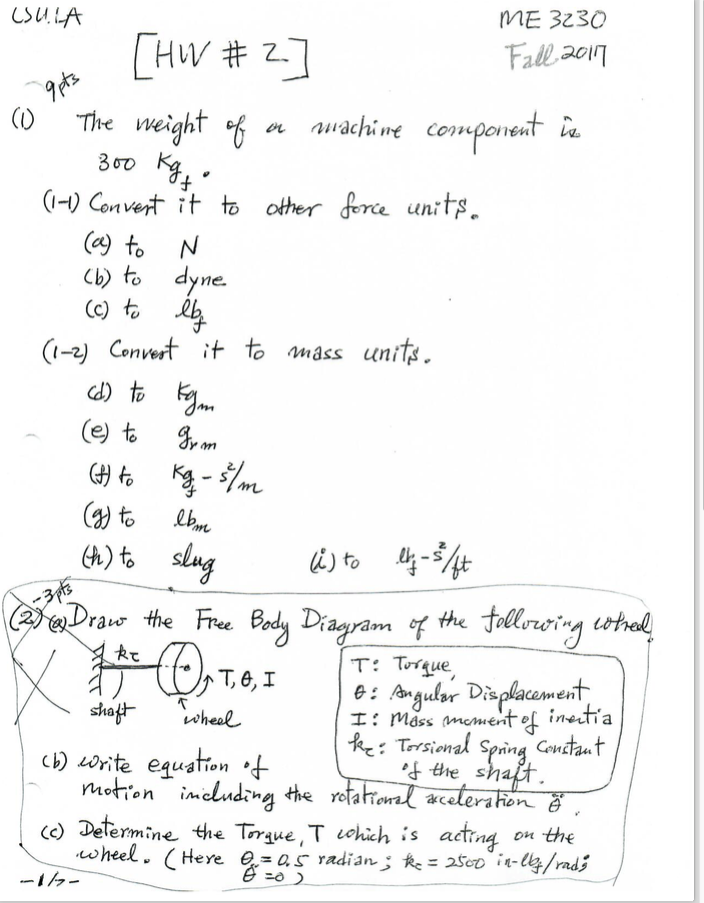 CSULA
ME 3230
[HW # 2]
Fall 2017
9pts
(1) The weight of a machine component is
300 Kgf.
(1-1) Convert it to other force units.
(a) to N
(b) to dyne
(c) to lbf
(1-2) Convert it to mass units.
(d) to Kgm
(e) to grm
(f) to Kgf-s²/m
(g) to lbm
(h) to slug (i) to lbf-s²/ft
-3pts
(2) (a) Draw the Free Body Diagram of the following wheel.
kτ
T, θ, I
shaft
wheel
T: Torque,
θ: Angular Displacement
I: Mass moment of inertia
kτ: Torsional Spring Constant
of the shaft.
(b) Write equation of
motion including the rotational acceleration θ̈.
(c) Determine the Torque, T which is acting on the
wheel. (Here θ = 0.5 radian; kτ = 2500 in-lbf/rad;
θ̈ = 0)